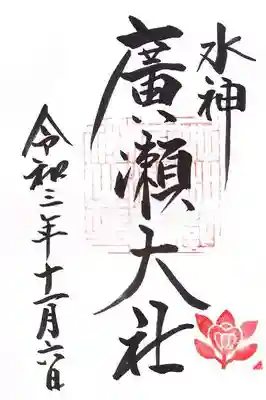 水神
廣瀬大社
令和三年十一月六日